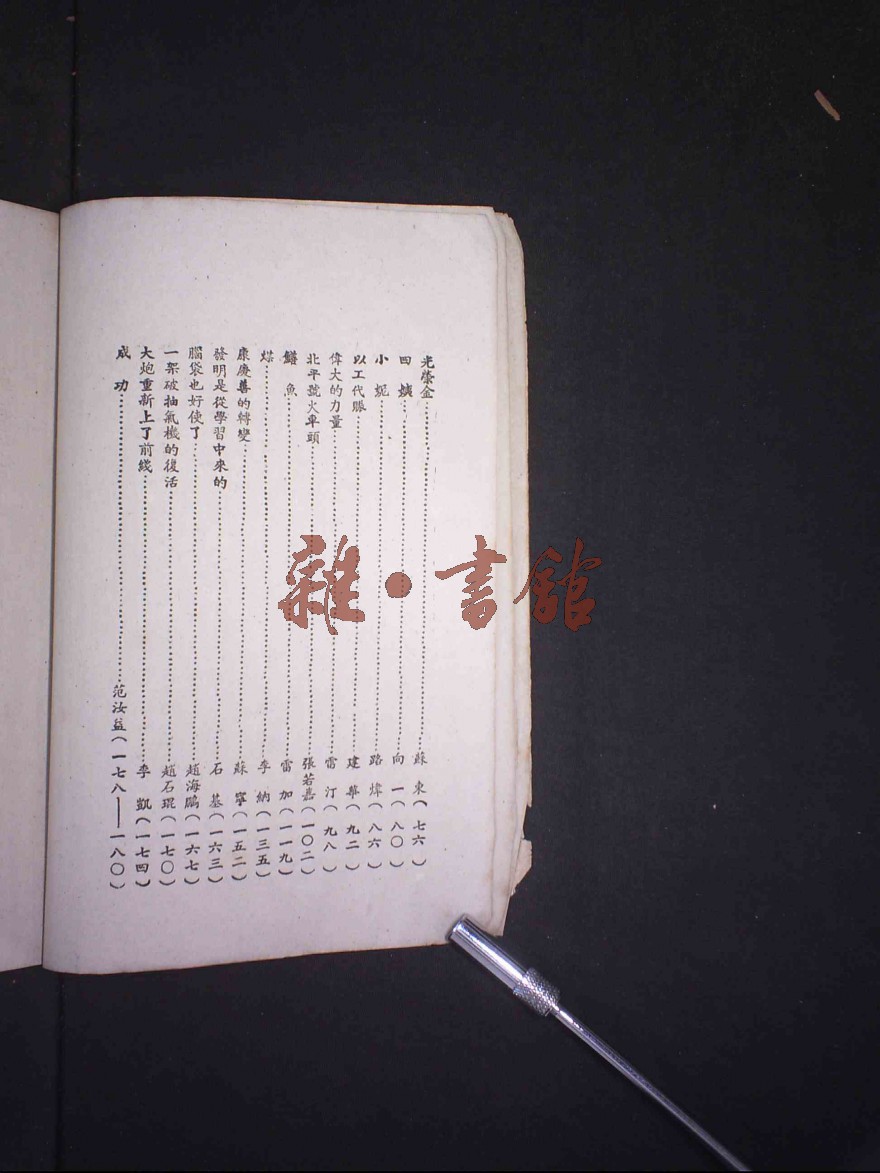 光榮金……蘇東（七六）
四姨……向一（八〇）
小妮……路煒（八六）
以工代賑……建華（九二）
偉大的力量……雷汀（九八）
北平號火車頭……張若嘉（一〇二）
鱔魚……雷加（一一九）
煤……李納（一三五）
康慶善的轉變……蘇寧（一五二）
發明是從學習中來的……石基（一六三）
腦袋也好使了……趙海鵬（一六七）
一架破抽氣機的復活……趙石琨（一七〇）
大炮重新上了前綫……李凱（一七四）
成功……范汝益（一七八——一八〇）
雜·書館